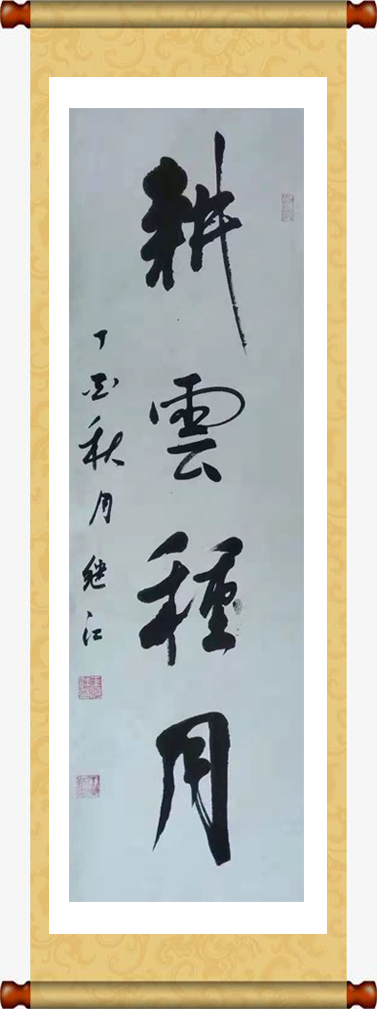 耕雲種月
丁酉秋月继江